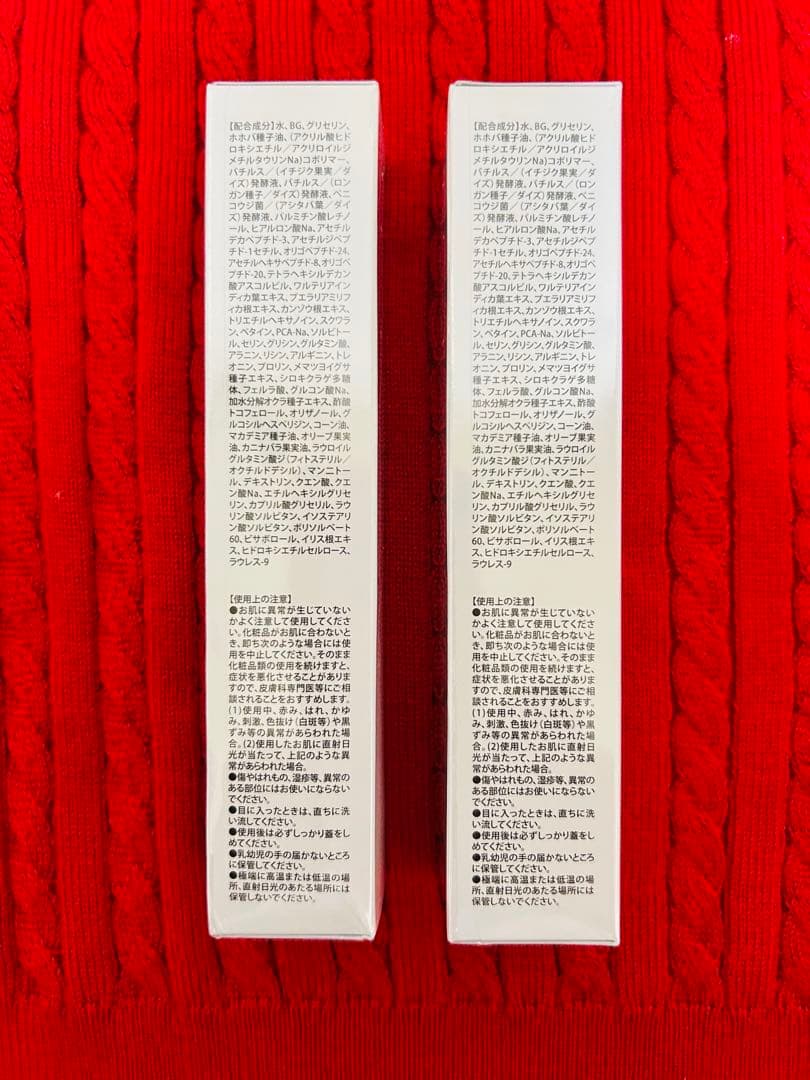 【配合成分】水、BG、グリセリン、
ホホバ種子油、(アクリル酸ヒド
ロキシエチル／アクリロイルジ
メチルタウリンNa)コポリマー、
バチルス／(イチジク果実／ダ
イズ)発酵液、バチルス／(ロン
ガン種子／ダイズ)発酵液、ベニ
コウジ菌／(アシタバ葉／ダイ
ズ)発酵液、パルミチン酸レチノ
ール、ヒアルロン酸Na、アセチル
デカペプチド-3、アセチルジペプ
チド-1セチル、オリゴペプチド-24、
アセチルヘキサペプチド-8、オリゴペ
プチド-20、テトラヘキシルデカン
酸アスコルビル、ワルテリアイン
ディカ葉エキス、プエラリアミリフ
ィカ根エキス、カンゾウ根エキス、
トリエチルヘキサノイン、スクワラ
ン、ベタイン、PCA-Na、ソルビトー
ル、セリン、グリシン、グルタミン酸、
アラニン、リシン、アルギニン、トレ
オニン、プロリン、メマツヨイグサ
種子エキス、シロキクラゲ多糖
体、フェルラ酸、グルコン酸Na、
加水分解オクラ種子エキス、酢酸
トコフェロール、オリザノール、グ
ルコシルヘスペリジン、コーン油、
マカデミア種子油、オリーブ果実
油、カニナバラ果実油、ラウロイル
グルタミン酸ジ(フィトステリル／
オクチルドデシル)、マンニトー
ル、デキストリン、クエン酸、クエ
ン酸Na、エチルヘキシルグリセ
リン、カプリル酸グリセリル、ラウ
リン酸ソルビタン、イソステアリ
ン酸ソルビタン、ポリソルベート
60、ビサボロール、イリス根エキ
ス、ヒドロキシエチルセルロース、
ラウレス-9
【使用上の注意】
●お肌に異常が生じていない
かよく注意して使用してくださ
い。化粧品がお肌に合わないと
き、即ち次のような場合には使
用を中止してください。そのまま
化粧品類の使用を続けますと、
症状を悪化させることがありま
すので、皮膚科専門医等にご相
談されることをおすすめします。
(1)使用中、赤み、はれ、かゆ
み、刺激、色抜け(白斑等)や黒
ずみ等の異常があらわれた場
合。(2)使用したお肌に直射日
光が当たって、上記のような異
常があらわれた場合。
●傷やはれもの、湿疹等、異常の
ある部位にはお使いにならない
でください。
●目に入ったときは、直ちに洗
い流してください。
●使用後は必ずしっかり蓋をし
めてください。
●乳幼児の手の届かないところ
に保管してください。
●極端に高温または低温の場
所、直射日光のあたる場所には
保管しないでください。
【配合成分】水、BG、グリセリン、
ホホバ種子油、(アクリル酸ヒド
ロキシエチル／アクリロイルジ
メチルタウリンNa)コポリマー、
バチルス／(イチジク果実／ダ
イズ)発酵液、バチルス／(ロン
ガン種子／ダイズ)発酵液、ベニ
コウジ菌／(アシタバ葉／ダイ
ズ)発酵液、パルミチン酸レチノ
ール、ヒアルロン酸Na、アセチル
デカペプチド-3、アセチルジペプ
チド-1セチル、オリゴペプチド-24、
アセチルヘキサペプチド-8、オリゴペ
プチド-20、テトラヘキシルデカン
酸アスコルビル、ワルテリアイン
ディカ葉エキス、プエラリアミリフ
ィカ根エキス、カンゾウ根エキス、
トリエチルヘキサノイン、スクワラ
ン、ベタイン、PCA-Na、ソルビトー
ル、セリン、グリシン、グルタミン酸、
アラニン、リシン、アルギニン、トレ
オニン、プロリン、メマツヨイグサ
種子エキス、シロキクラゲ多糖
体、フェルラ酸、グルコン酸Na、
加水分解オクラ種子エキス、酢酸
トコフェロール、オリザノール、グ
ルコシルヘスペリジン、コーン油、
マカデミア種子油、オリーブ果実
油、カニナバラ果実油、ラウロイル
グルタミン酸ジ(フィトステリル／
オクチルドデシル)、マンニトー
ル、デキストリン、クエン酸、クエ
ン酸Na、エチルヘキシルグリセ
リン、カプリル酸グリセリル、ラウ
リン酸ソルビタン、イソステアリ
ン酸ソルビタン、ポリソルベート
60、ビサボロール、イリス根エキ
ス、ヒドロキシエチルセルロース、
ラウレス-9
【使用上の注意】
●お肌に異常が生じていない
かよく注意して使用してくださ
い。化粧品がお肌に合わないと
き、即ち次のような場合には使
用を中止してください。そのまま
化粧品類の使用を続けますと、
症状を悪化させることがありま
すので、皮膚科専門医等にご相
談されることをおすすめします。
(1)使用中、赤み、はれ、かゆ
み、刺激、色抜け(白斑等)や黒
ずみ等の異常があらわれた場
合。(2)使用したお肌に直射日
光が当たって、上記のような異
常があらわれた場合。
●傷やはれもの、湿疹等、異常の
ある部位にはお使いにならない
でください。
●目に入ったときは、直ちに洗
い流してください。
●使用後は必ずしっかり蓋をし
めてください。
●乳幼児の手の届かないところ
に保管してください。
●極端に高温または低温の場
所、直射日光のあたる場所には
保管しないでください。